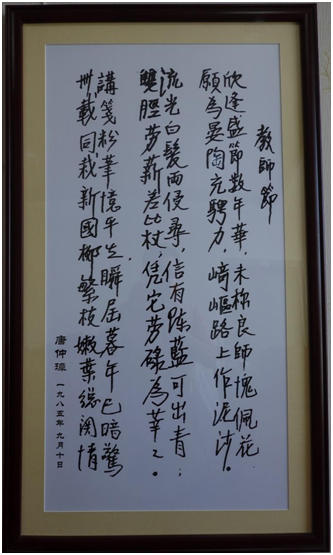 教師節
欣逢盛節数年華,未称良師愧佩花
願為晏陶充騁力,崎嶇路上作泥沙。
流光白髮兩侵尋,信有陳藍可出青;
雙脛劳薪差比杖,凭它劳碌為莘々。
講箋粉筆憶平生,瞬届暮年已暗驚
卅載同栽新國柳繁枝嫩葉總関情
唐仲璋 一九八五年九月十日